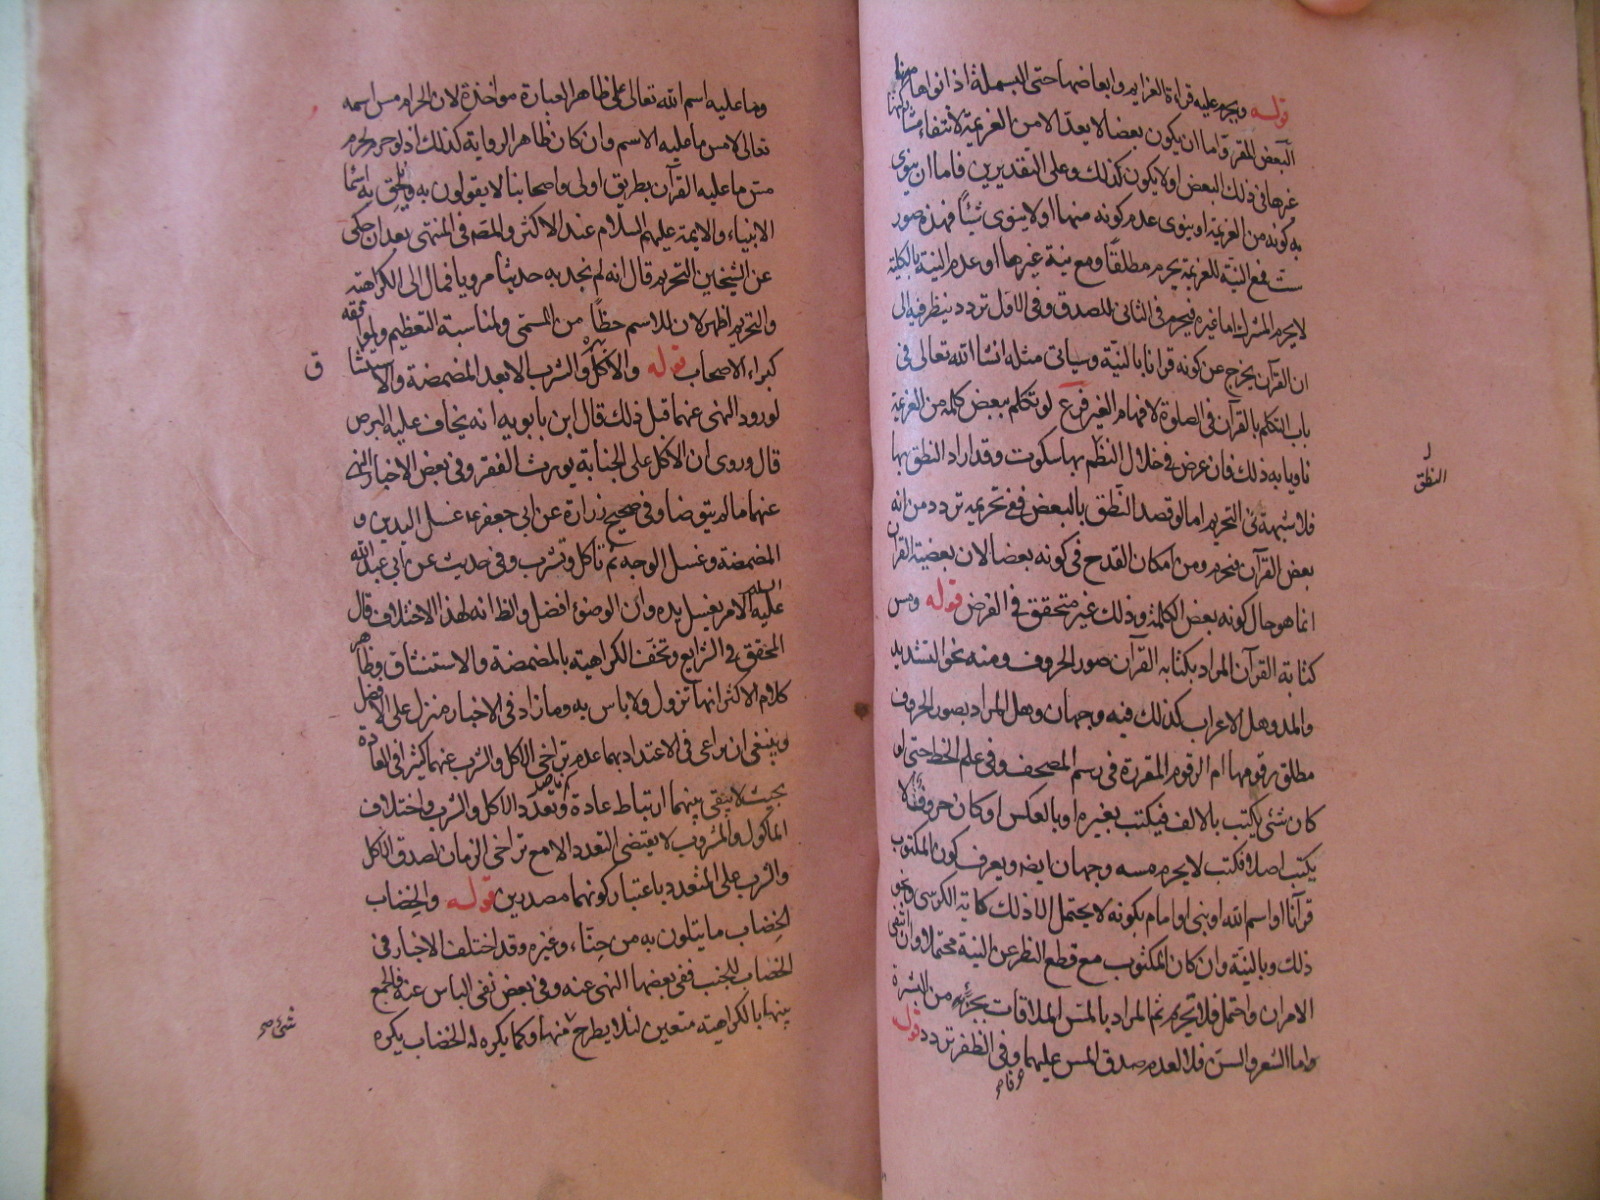 قوله ويحرم عليه قراءة العزايم وابعاضها حتى البسملة اذا نواها منها
البعض المقروا ما ان يكون بعضا لا يعد الا من العزيمة لانتفاء مشاركتها
غرها في ذلك البعض او لا يكون كذلك وعلى التقديرين فاما ان ينوى
به كونه من العزيمة او ينوى عدم كونه منها او لا ينوى شيئا فهذه صور
ست فمع النية للعزيمة يحرم مطلقا ومع نية غيرها او عدم النية بالكلية
لا يحرم المشترك اما غيره فيحرم في الثاني للصدق وفي الاول تردد ينظر فيه الى
ان القرآن يخرج عن كونه قرانا بالنية وسياتى مثله انشا الله تعالى فى
باب التكلم بالقرآن فى الصلوة لافهام الغير فرع لو تكلم ببعض كلمة من العزيمة
ناويا به ذلك فان عرض في خلال النظم بها سكوت وقد اراد النطق بها
النطق
فلا شبهة في التحريم اما لو قصد النطق بالبعض ففي تحريمه تردد من انه
بعض القرآن فيحرم ومن امكان القدح في كونه بعضا لان بعضية القرآن
انما هو حال كونه بعض الكلمة وذلك غير متحقق في الفرض قوله ومس
كتابة القرآن المراد بكتابه القرآن صور الحروف ومنه نحو التشديد
والمد وهل الاعراب كذلك فيه وجهان وهل المراد بصور الحروف
مطلق رقومها ام الرقوم المقررة في رسم المصحف وفى علم الخط حتى لو
كان شئ يكتب بالالف فيكتب بغيره او بالعكس او كان حروفه لا
يكتب اصلا فكتب لا يحرم مسه وجهان ايضا ويعرف كون المكتوب
قرآنا او اسم الله او نبى او امام بكونه لا يحتمل الا ذلك كاية الكرسى ونحو
ذلك وبالنية وان كان المكتوب مع قطع النظر عن النية محتملا وان انتفى
الامران واحتمل فلا تحريم ثم المراد بالمس الملاقات بجزء من البشرة
واما الشعر والسن فلا لعدم صدق المس عليهما وفى الظفر تردد قوله
وما عليه اسم الله تعالى على ظاهر العبارة مواخذة لان الحرام مس اسمه
تعالى لا مس ما عليه الاسم وان كان ظاهر الرواية كذلك اذ لو حرم لحرم
مس ما عليه القرآن بطريق اولى واصحابنا لا يقولون به ويلحق به اسما
الانبياء والايمة عليهم السلام عند الاكثر والمصنف في المنتهى بعد ان حكى
عن الشيخين التحريم قال انه لم نجد به حديثا مرويا فمال الى الكراهته
والتحريم اظهر لان للاسم حظا من المسمى ولمناسبة التعظيم ولموافقه
كبراء الاصحاب قوله والاكل والشرب الا بعد المضمضة والاستنشا
ق
لورود النهى عنهما قبل ذلك قال ابن بابويه انه يخاف عليه البرص
قال وروى ان الاكل على الجنابة يورث الفقر وفى بعض الاخبار النهى
عنهما ما لم يتوضا وفى صحيح زرارة عن ابي جعفر ع غسل اليدين و
المضمضة وغسل الوجه ثم تأكل وتشرب وفى حديث عن ابى عبدالله
عليه السلام الامر بغسل يده وان الوضوء افضل والظ انه لهذا الاختلاف قال
المحقق في الشرايع وتخف الكراهيته بالمضمضة والاستنشاق وظاهر
كلام الاكثر انها تزول ولا باس به وما زاد في الاخبار منزل على الافضل
وينبغى ان يراعى فى الاعتداد بهما عدم تراخى الاكل والشرب عنهما كثيرا فى العادة
بحيث لا يبقى بينهما ارتباط عادة وتعدد الاكل والشرب واختلاف
الماكول والمشروب لا يقتضى التعدد الا مع تراخى الزمان لصدق الاكل
والشرب على المتعدد باعتبار كونهما مصدرين قوله والخضاب
الخضاب ما يتلون به من حناء وغيره وقد اختلف الاخبار فى
الخضاب للجنب ففى بعضها النهى عنه وفى بعض نفى الباس عنه فالجمع
بينها بالكراهيته متعين لئلا يطرح منها وكما يكره له الخضاب يكره
شئ صح